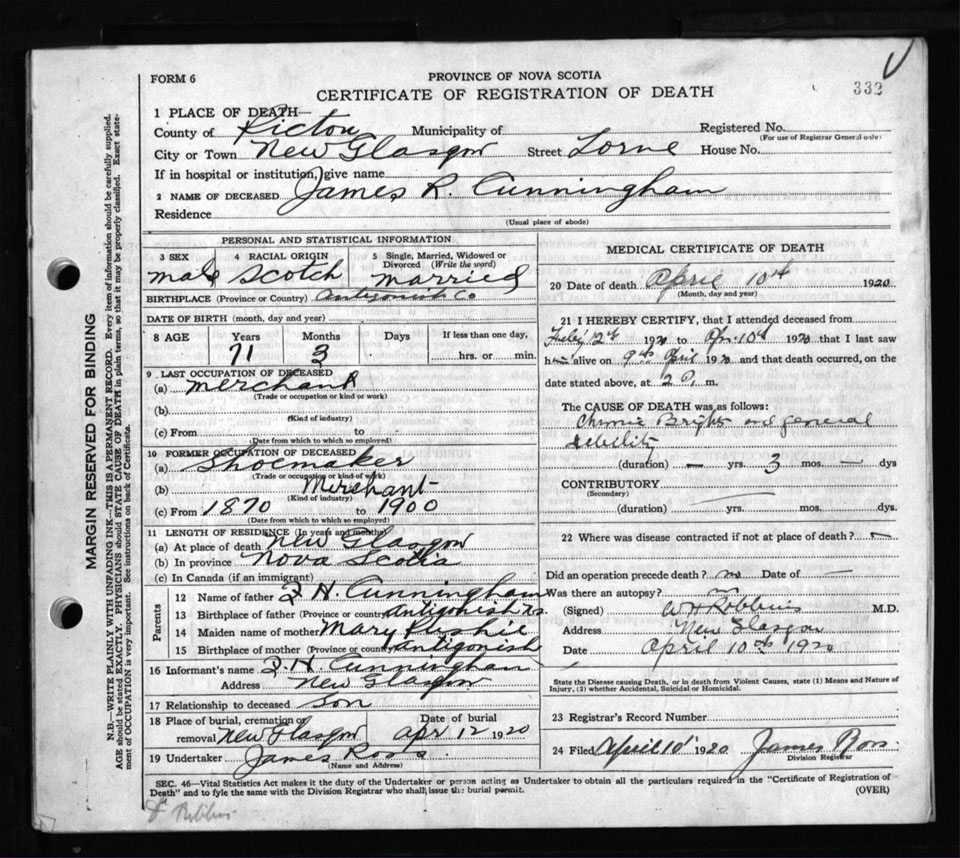 FORM 6
PROVINCE OF NOVA SCOTIA
CERTIFICATE OF REGISTRATION OF DEATH
332
1 PLACE OF DEATH—
County of Pictou Municipality of Registered No.
(For use of Registrar General only)
City or Town New Glasgow Street Lorne House No.
If in hospital or institution, give name
2 NAME OF DECEASED James R. Cunningham
Residence
(Usual place of abode)
PERSONAL AND STATISTICAL INFORMATION
3 SEX 4 RACIAL ORIGIN 5 Single, Married, Widowed or Divorced (Write the word)
male Scotch married
BIRTHPLACE (Province or Country) Antigonish Co
DATE OF BIRTH (month, day and year)
8 AGE Years Months Days If less than one day,
71 3 hrs. or min.
9 LAST OCCUPATION OF DECEASED
(a) merchant
(Trade or occupation or kind or work)
(b)
(Kind of industry)
(c) From to
(Date from which to which so employed)
10 FORMER OCCUPATION OF DECEASED
(a) Shoemaker
(Trade or occupation or kind of work)
(b) Merchant
(Kind of industry)
(c) From 1870 to 1900
(Date from which to which so employed)
11 LENGTH OF RESIDENCE (In years and months)
(a) At place of death New Glasgow
(b) In province Nova Scotia
(c) In Canada (if an immigrant)
Parents
12 Name of father H. Cunningham
13 Birthplace of father (Province or country) Antigonish N.S.
14 Maiden name of mother Mary
15 Birthplace of mother (Province or country) Antigonish
16 Informant's name H. Cunningham
Address New Glasgow
17 Relationship to deceased Son
18 Place of burial, cremation or removal New Glasgow
Date of burial Apr 12 1920
19 Undertaker James Ross
(Name and Address)
MEDICAL CERTIFICATE OF DEATH
20 Date of death April 10th 1920
(Month, day and year)
21 I HEREBY CERTIFY, that I attended deceased from
Feby 12th 1920 to Apr. 10th 1920 that I last saw
him alive on 9th April 1920 and that death occurred, on the
date stated above, at 2 P. m.
The CAUSE OF DEATH was as follows:
Chronic Brights and general
debility
(duration) — yrs. 3 mos. — dys
CONTRIBUTORY
(Secondary)
(duration) yrs. mos. dys.
22 Where was disease contracted if not at place of death? —
Did an operation precede death? no Date of —
Was there an autopsy?
(Signed) W H Robbins M.D.
Address New Glasgow
Date April 10th 1920
State the Disease causing Death, or in death from Violent Causes, state (1) Means and Nature of
Injury, (2) whether Accidental, Suicidal or Homicidal.
23 Registrar's Record Number
24 Filed April 10 1920 James Ross
Division Registrar
SEC. 46—Vital Statistics Act makes it the duty of the Undertaker or person acting as Undertaker to obtain all the particulars required in the "Certificate of Registration of
Death" and to fyle the same with the Division Registrar who shall issue the burial permit.
(OVER)
MARGIN RESERVED FOR BINDING
N.B.—WRITE PLAINLY WITH UNFADING INK—THIS IS A PERMANENT RECORD. Every item of information should be carefully supplied.
AGE should be stated EXACTLY. PHYSICIANS should STATE CAUSE OF DEATH in plain terms, so that it may be properly classified. Exact statement of OCCUPATION is very important. See instructions on back of Certificate.